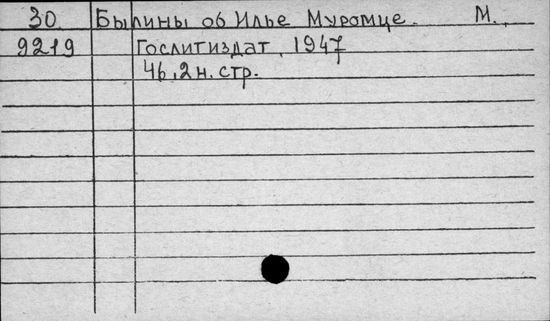 30. Былины об Илье Муромце. М.,
9219 Гослитиздат, 1947
46, 2 н. стр.